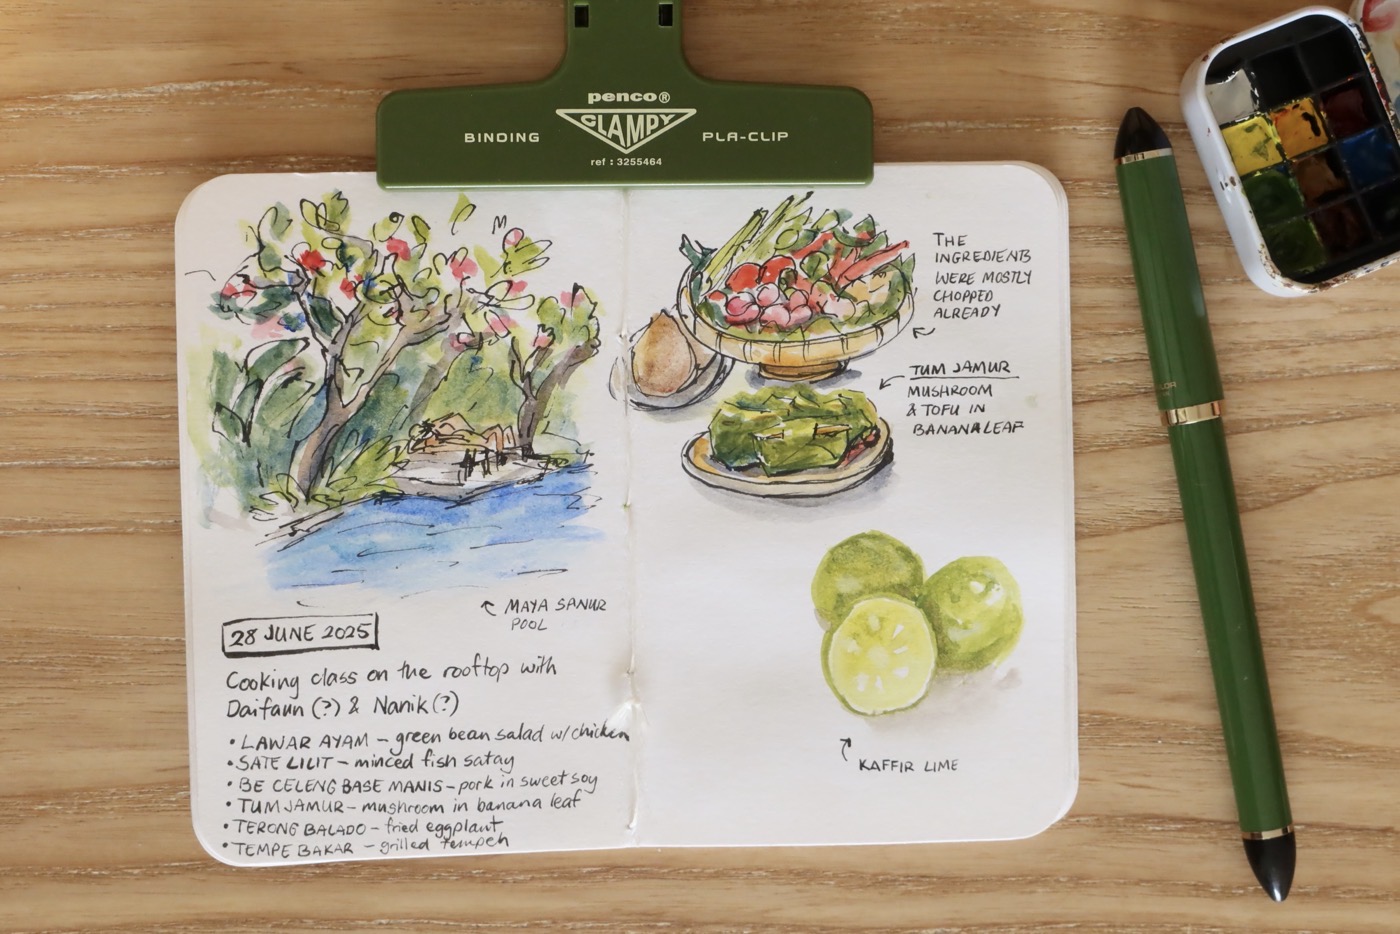 penco®
BINDING CLAMPY PLA-CLIP
ref : 3255464
MAYA SANUR
POOL
28 JUNE 2025
Cooking class on the rooftop with
Daifaun (?) & Nanik (?)
• LAWAR AYAM – green bean salad w/ chicken
• SATE LILIT – minced fish satay
• BE CELENG BASE MANIS – pork in sweet soy
• TUM JAMUR – mushroom in banana leaf
• TERONG BALADO – fried eggplant
• TEMPE BAKAR – grilled tempeh
THE
INGREDIENTS
WERE MOSTLY
CHOPPED
ALREADY
TUM JAMUR
MUSHROOM
& TOFU IN
BANANA LEAF
KAFFIR LIME